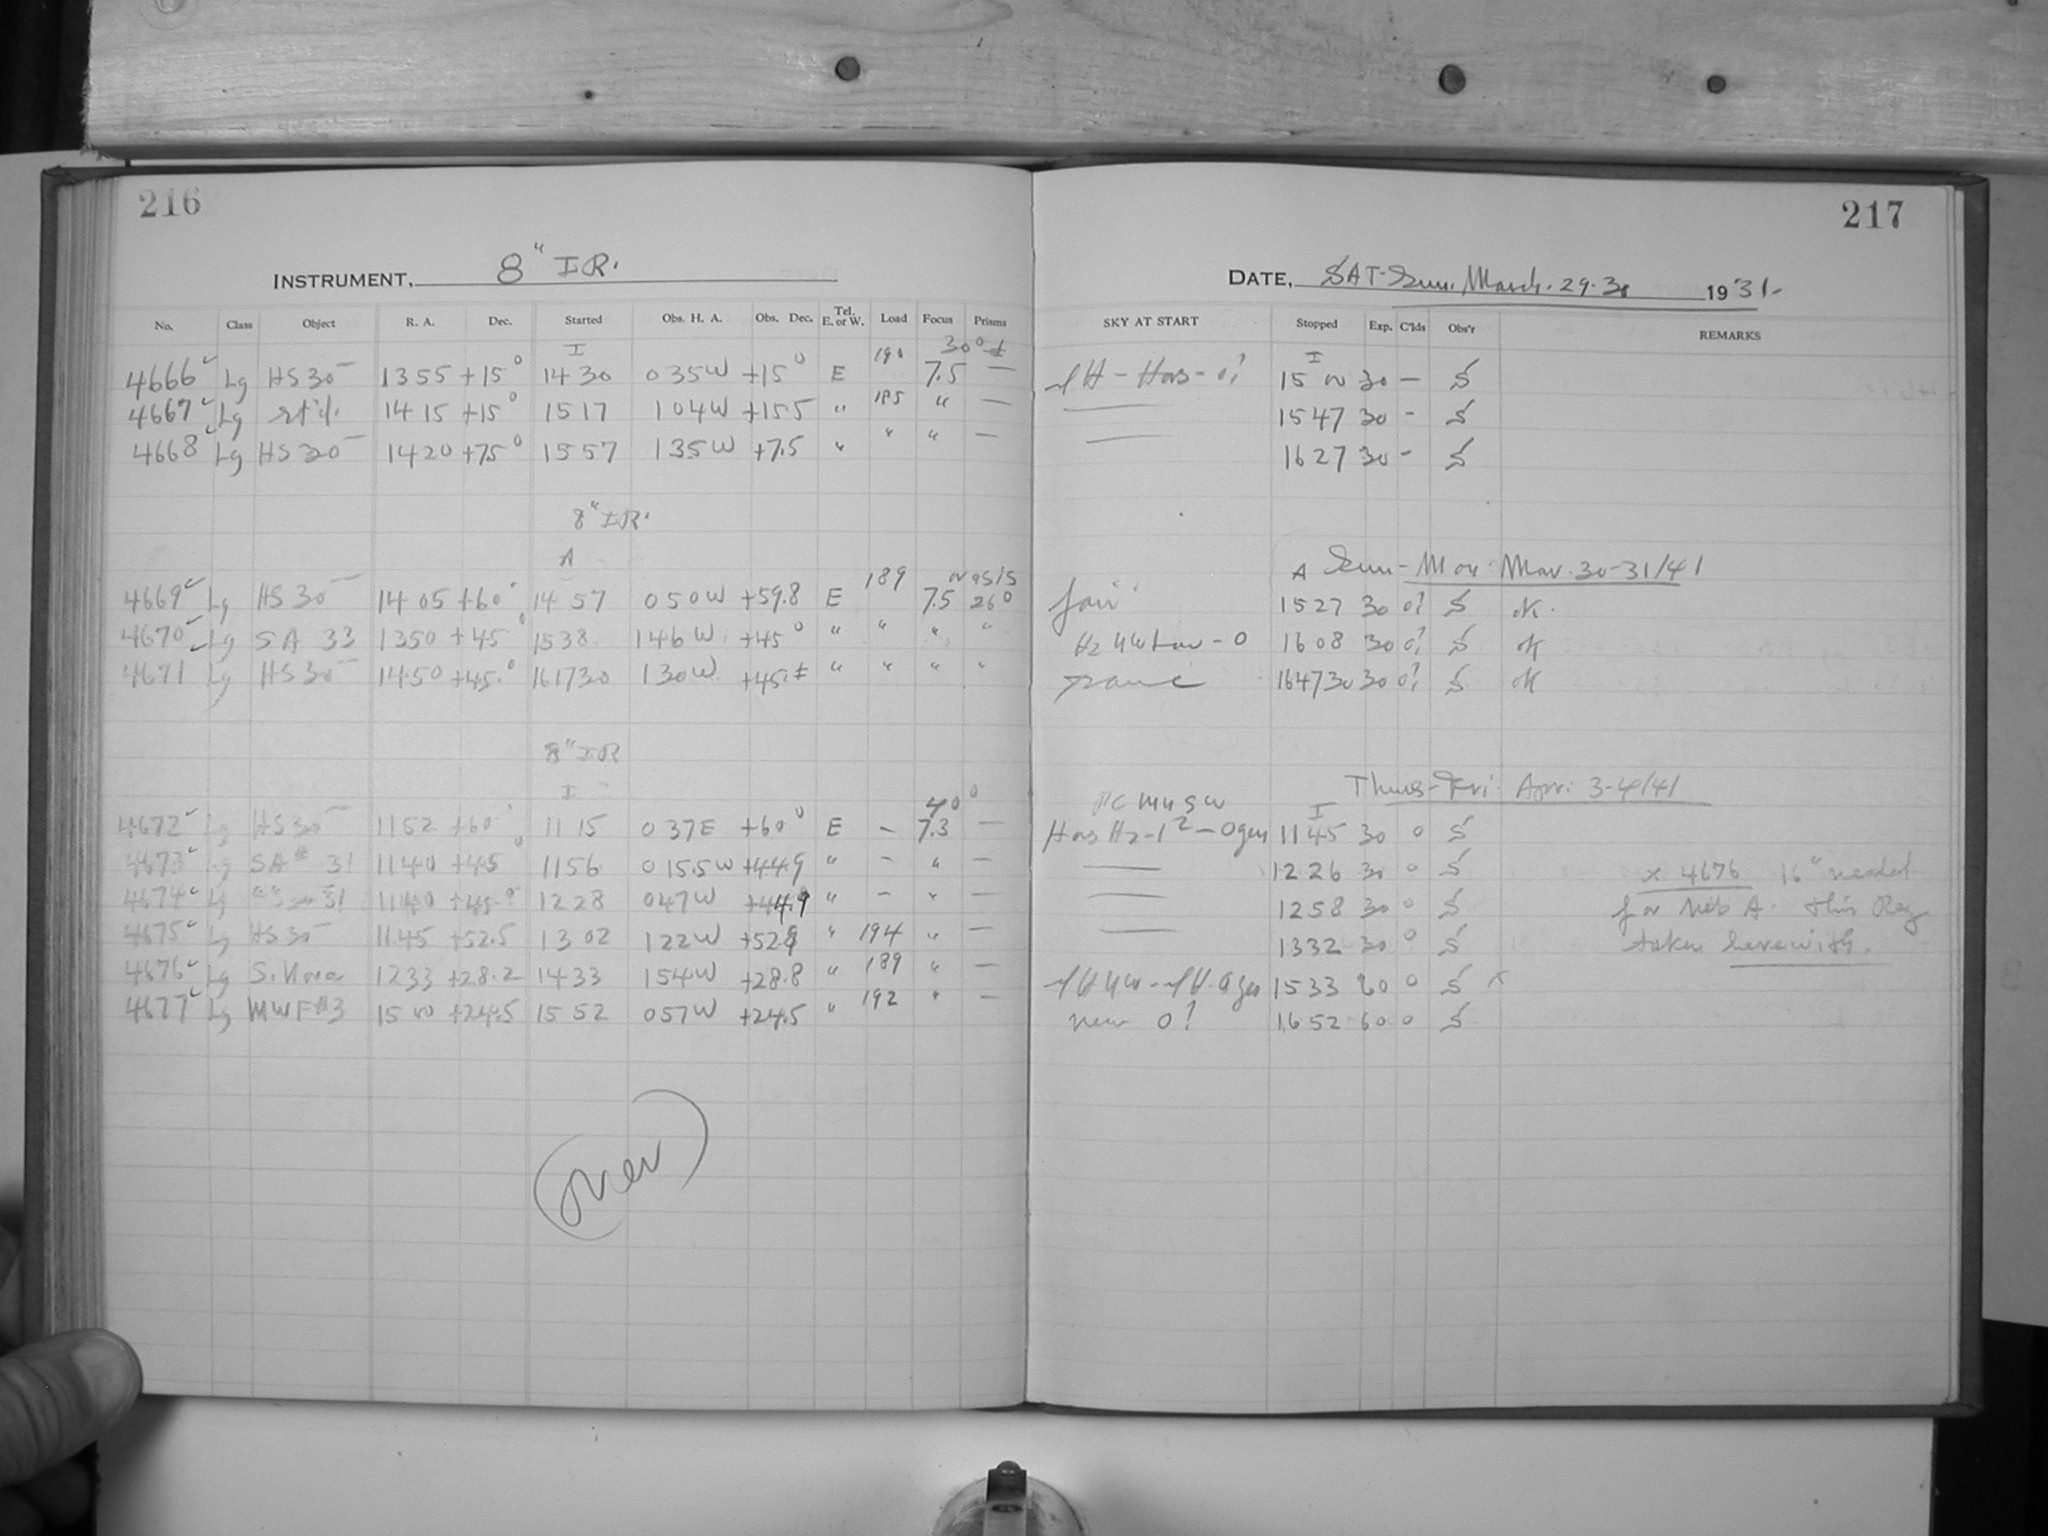 216
INSTRUMENT, 8" I.R.
No. Class Object R. A. Dec. Started Obs. H. A. Obs. Dec. Tel. E. or W. Load Focus Prisms
I 190 30°
4666 Lg HS 30 1355 +15° 1430 035W +15° E 7.5 —
4667 Lg 1415 +15° 1517 104W +15.5 " 185 " —
4668 Lg HS 30 1420 +75° 1557 135W +7.5 " " " —
8" I.R.
A
4669 Lg HS 30 1405 +60° 1457 050W +59.8 E 189 7.5 26°
4670 Lg SA 33 1350 +45° 1538 146W +45° " " " "
4671 Lg HS 30 1450 +45° 161730 130W +45.± " " " "
8" I.R.
I 40°
4672 Lg HS 30 1152 +60° 1115 037E +60° E – 7.3 —
4673 Lg SA # 31 1140 +45° 1156 015.5W +44.9 " – " —
4674 Lg 1140 +45.° 1228 047W +44.9 " – " —
4675 Lg HS 30 1145 +52.5 1302 122W +52.9 " 194 " —
4676 Lg 1233 +28.2 1433 154W +28.8 " 189 " —
4677 Lg MWF#3 1500 +24.5 1552 057W +24.5 " 192 " —
over
217
DATE, SAT-Sun. March. 29-30 1931.
SKY AT START Stopped Exp. C'lds Obs'r REMARKS
I
1500 30 – S
1547 30 – S
1627 30 – S
A Sun-Mon Mar. 30-31/41
fair 1527 30 0? S OK.
1608 30 0? S OK
164730 30 0? S OK
Thurs-Fri Apr. 3-4/41
I
1145 30 0 S
1226 30 0 S x 4676 16" needed
1258 30 0 S for Neb A. this Reg
1332 30 0 S taken herewith.
1533 60 0 S x
new 0? 1652 60 0 S